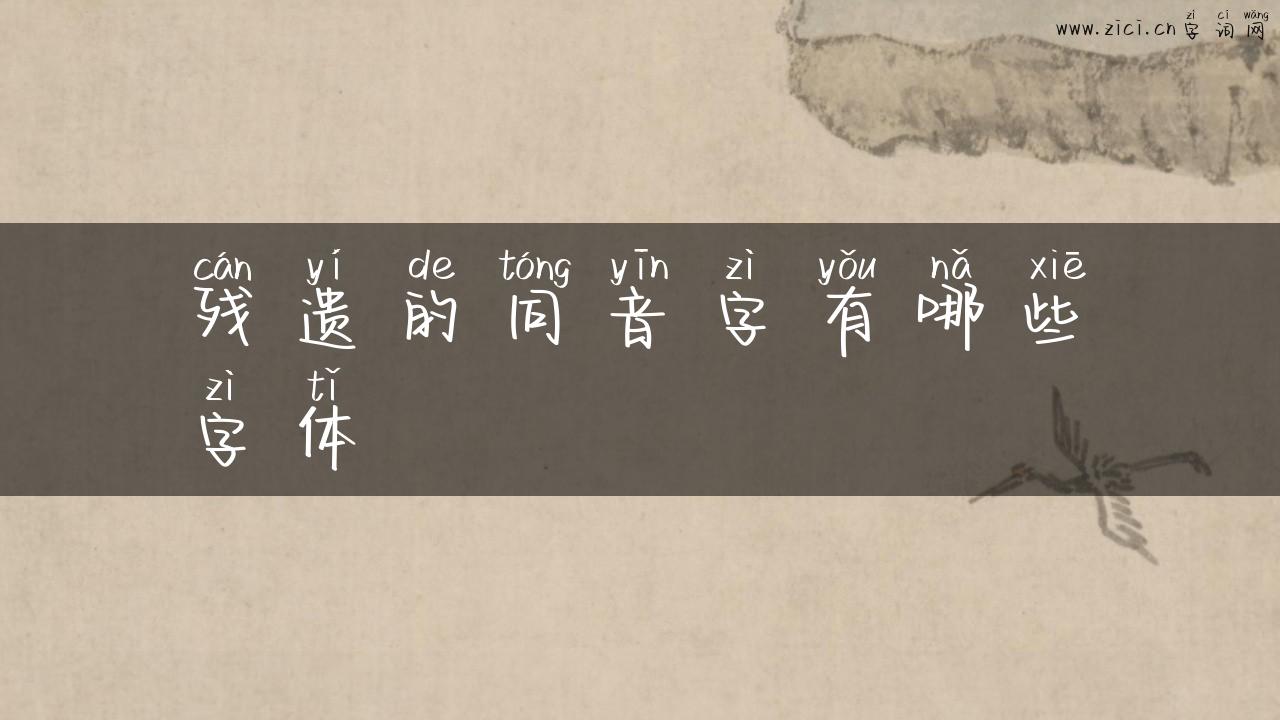 zì cí wǎng
www.zici.cn 字词网
cán yí de tóng yīn zì yǒu nǎ xiē
残遗的同音字有哪些
zì tǐ
字体